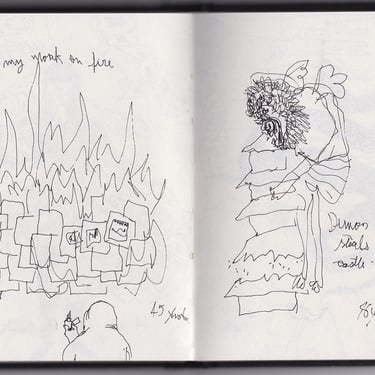 my work on fire
45
Demon
steals
castle.